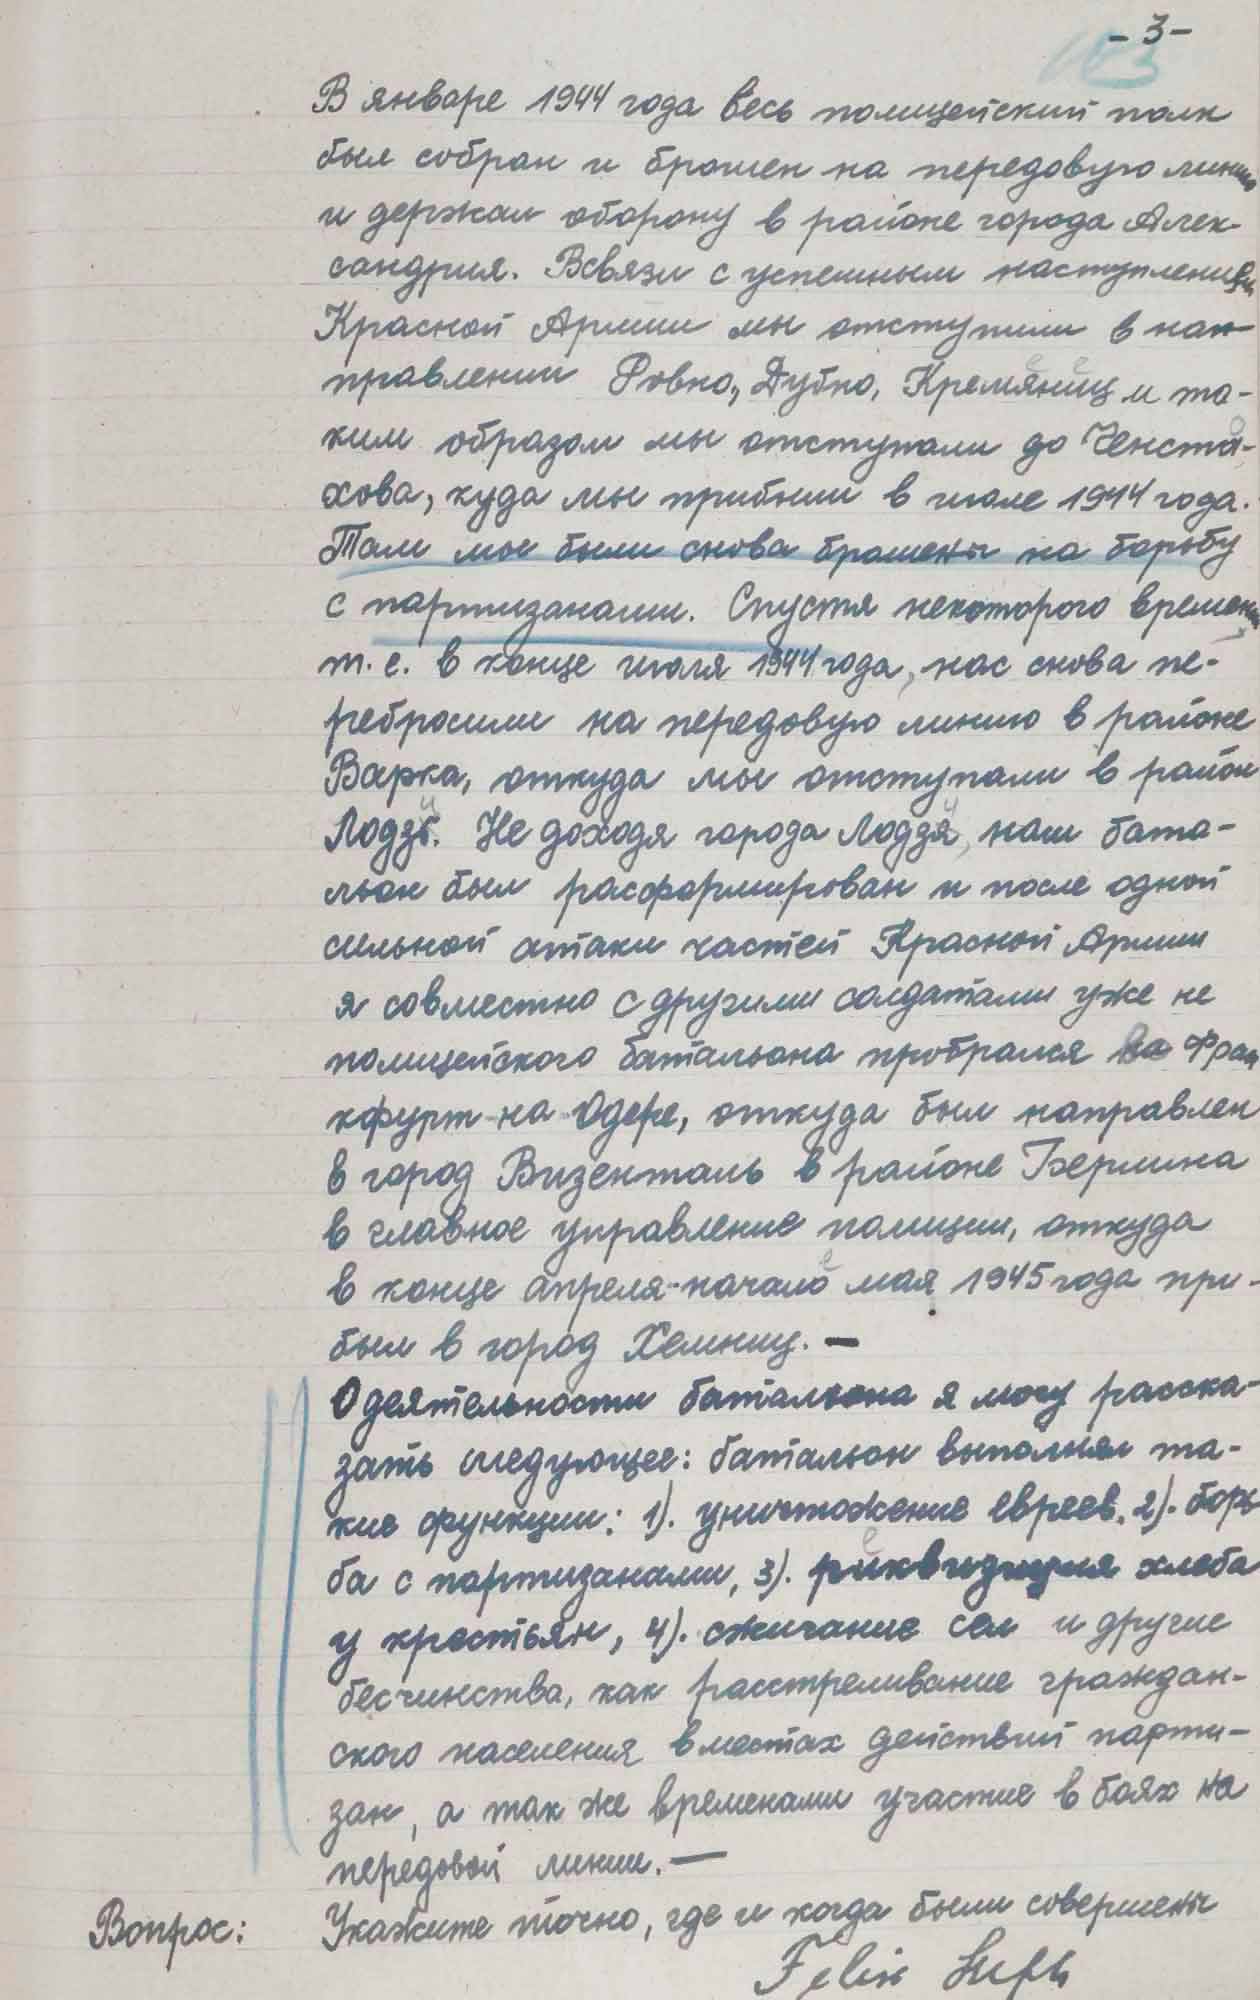 - 3 -
В январе 1944 года весь полицейский полк
был собран и брошен на передовую линию
и держал оборону в районе города Алек-
сандрия. Всвязи с успешным наступлением
Красной Армии мы отступили в нап-
правлении Ровно, Дубно, Кремениц и та-
ким образом мы отступали до Ченсто-
хова, куда мы прибыли в июле 1944 года.
Там мы были снова брошены на борьбу
с партизанами. Спустя некоторого времени
т.е. в конце июля 1944 года, нас снова пе-
ребросили на передовую линию в районе
Варка, откуда мы отступали в район
Лодзи. Не доходя города Лодзи, наш бата-
льон был расформирован и после одной
сильной атаки частей Красной Армии
я совместно с другими солдатами уже не
полицейского батальона пробрался на Фран
кфурт-на Одере, откуда был направлен
в город Визенталь в районе Берлина
в главное управление полиции, откуда
в конце апреля-начале мая 1945 года при-
был в город Хемниц. —
О деятельности батальона я могу расска-
зать следующее: батальон выполнял та-
кие функции: 1). уничтожение евреев, 2). борь
ба с партизанами, 3). реквизиция хлеба
у крестьян, 4). сжигание сел и другие
бесчинства, как расстреливание граждан-
ского населения в местах действий парти-
зан, а так же временами участие в боях на
передовой линии. —
Вопрос: Укажите точно, где и когда были совершены
Felix